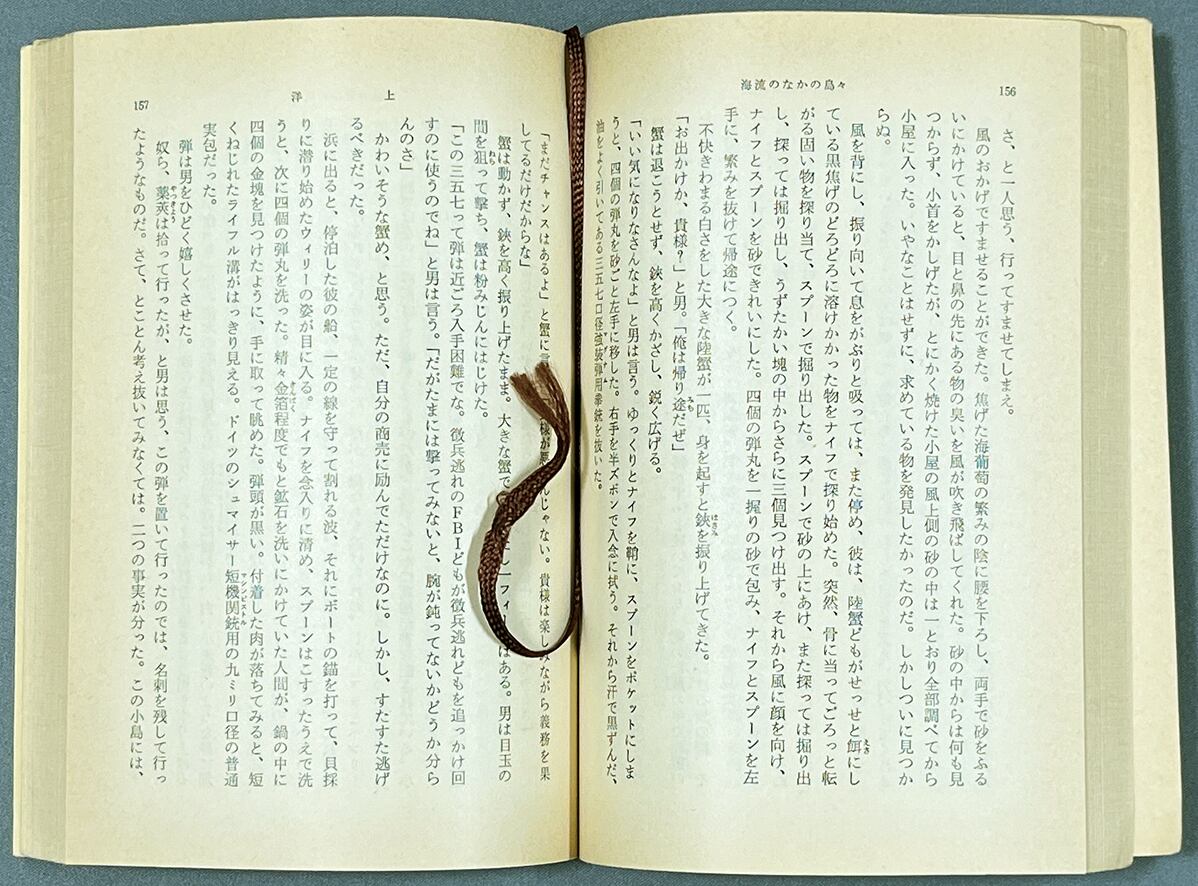 156
海流のなかの島々
さ、と一人思う、行ってすませてしまえ。
風のおかげですませることができた。焦げた海葡萄の繁みの陰に腰を下ろし、両手で砂をふる
いにかけていると、目と鼻の先にある物の臭いを風が吹き飛ばしてくれた。砂の中からは何も見
つからず、小首をかしげたが、とにかく焼けた小屋の風上側の砂の中は一とおり全部調べてから
小屋に入った。いやなことはせずに、求めている物を発見したかったのだ。しかしついに見つか
らぬ。
風を背にし、振り向いて息をがぶりと吸っては、また停め、彼は、陸蟹どもがせっせと餌にし
ている黒焦げのどろどろに溶けかかった物をナイフで探り始めた。突然、骨に当ってごろっと転
がる固い物を探り当て、スプーンで掘り出した。スプーンで砂の上にあけ、また探っては掘り出
し、探っては掘り出し、うずたかい塊の中からさらに三個見つけ出す。それから風に顔を向け、
ナイフとスプーンを砂できれいにした。四個の弾丸を一握りの砂で包み、ナイフとスプーンを左
手に、繁みを抜けて帰途につく。
不快きわまる白さをした大きな陸蟹が一匹、身を起すと鋏を振り上げてきた。
「お出かけか、貴様？」と男。「俺は帰り途だぜ」
蟹は退こうとせず、鋏を高くかざし、鋭く広げる。
「いい気になりなさんなよ」と男は言う。ゆっくりとナイフを鞘に、スプーンをポケットにしま
うと、四個の弾丸を砂ごと左手に移した。右手を半ズボンで入念に拭う。それから汗で黒ずんだ、
油をよく引いてある三五七口径強装弾用拳銃を抜いた。
上 洋
157
「まだチャンスはあるよ」と蟹に言んじゃない。貴様は楽しみながら義務を果
してるだけだからな」
蟹は動かず、鋏を高く振り上げたまま。大きな蟹で一フィーはある。男は目玉の
間を狙って撃ち、蟹は粉みじんにはじけた。
「この三五七って弾は近ごろ入手困難でな。徴兵逃れのＦＢＩどもが徴兵逃れどもを追っかけ回
すのに使うのでね」と男は言う。「だがたまには撃ってみないと、腕が鈍ってないかどうか分ら
んのさ」
かわいそうな蟹め、と思う。ただ、自分の商売に励んでただけなのに。しかし、すたすた逃げ
るべきだった。
浜に出ると、停泊した彼の船、一定の線を守って割れる波、それにボートの錨を打って、貝採
りに潜り始めたウィリーの姿が目に入る。ナイフを念入りに清め、スプーンはこすったうえで洗
うと、次に四個の弾丸を洗った。精々金箔程度でもと鉱石を洗いにかけていた人間が、鍋の中に
四個の金塊を見つけたように、手に取って眺めた。弾頭が黒い。付着した肉が落ちてみると、短
くねじれたライフル溝がはっきり見える。ドイツのシュマイサー短機関銃用の九ミリ口径の普通
実包だった。
弾は男をひどく嬉しくさせた。
奴ら、薬莢は拾って行ったが、と男は思う、この弾を置いて行ったのでは、名刺を残して行っ
たようなものだ。さて、とことん考え抜いてみなくては。二つの事実が分った。この小島には、